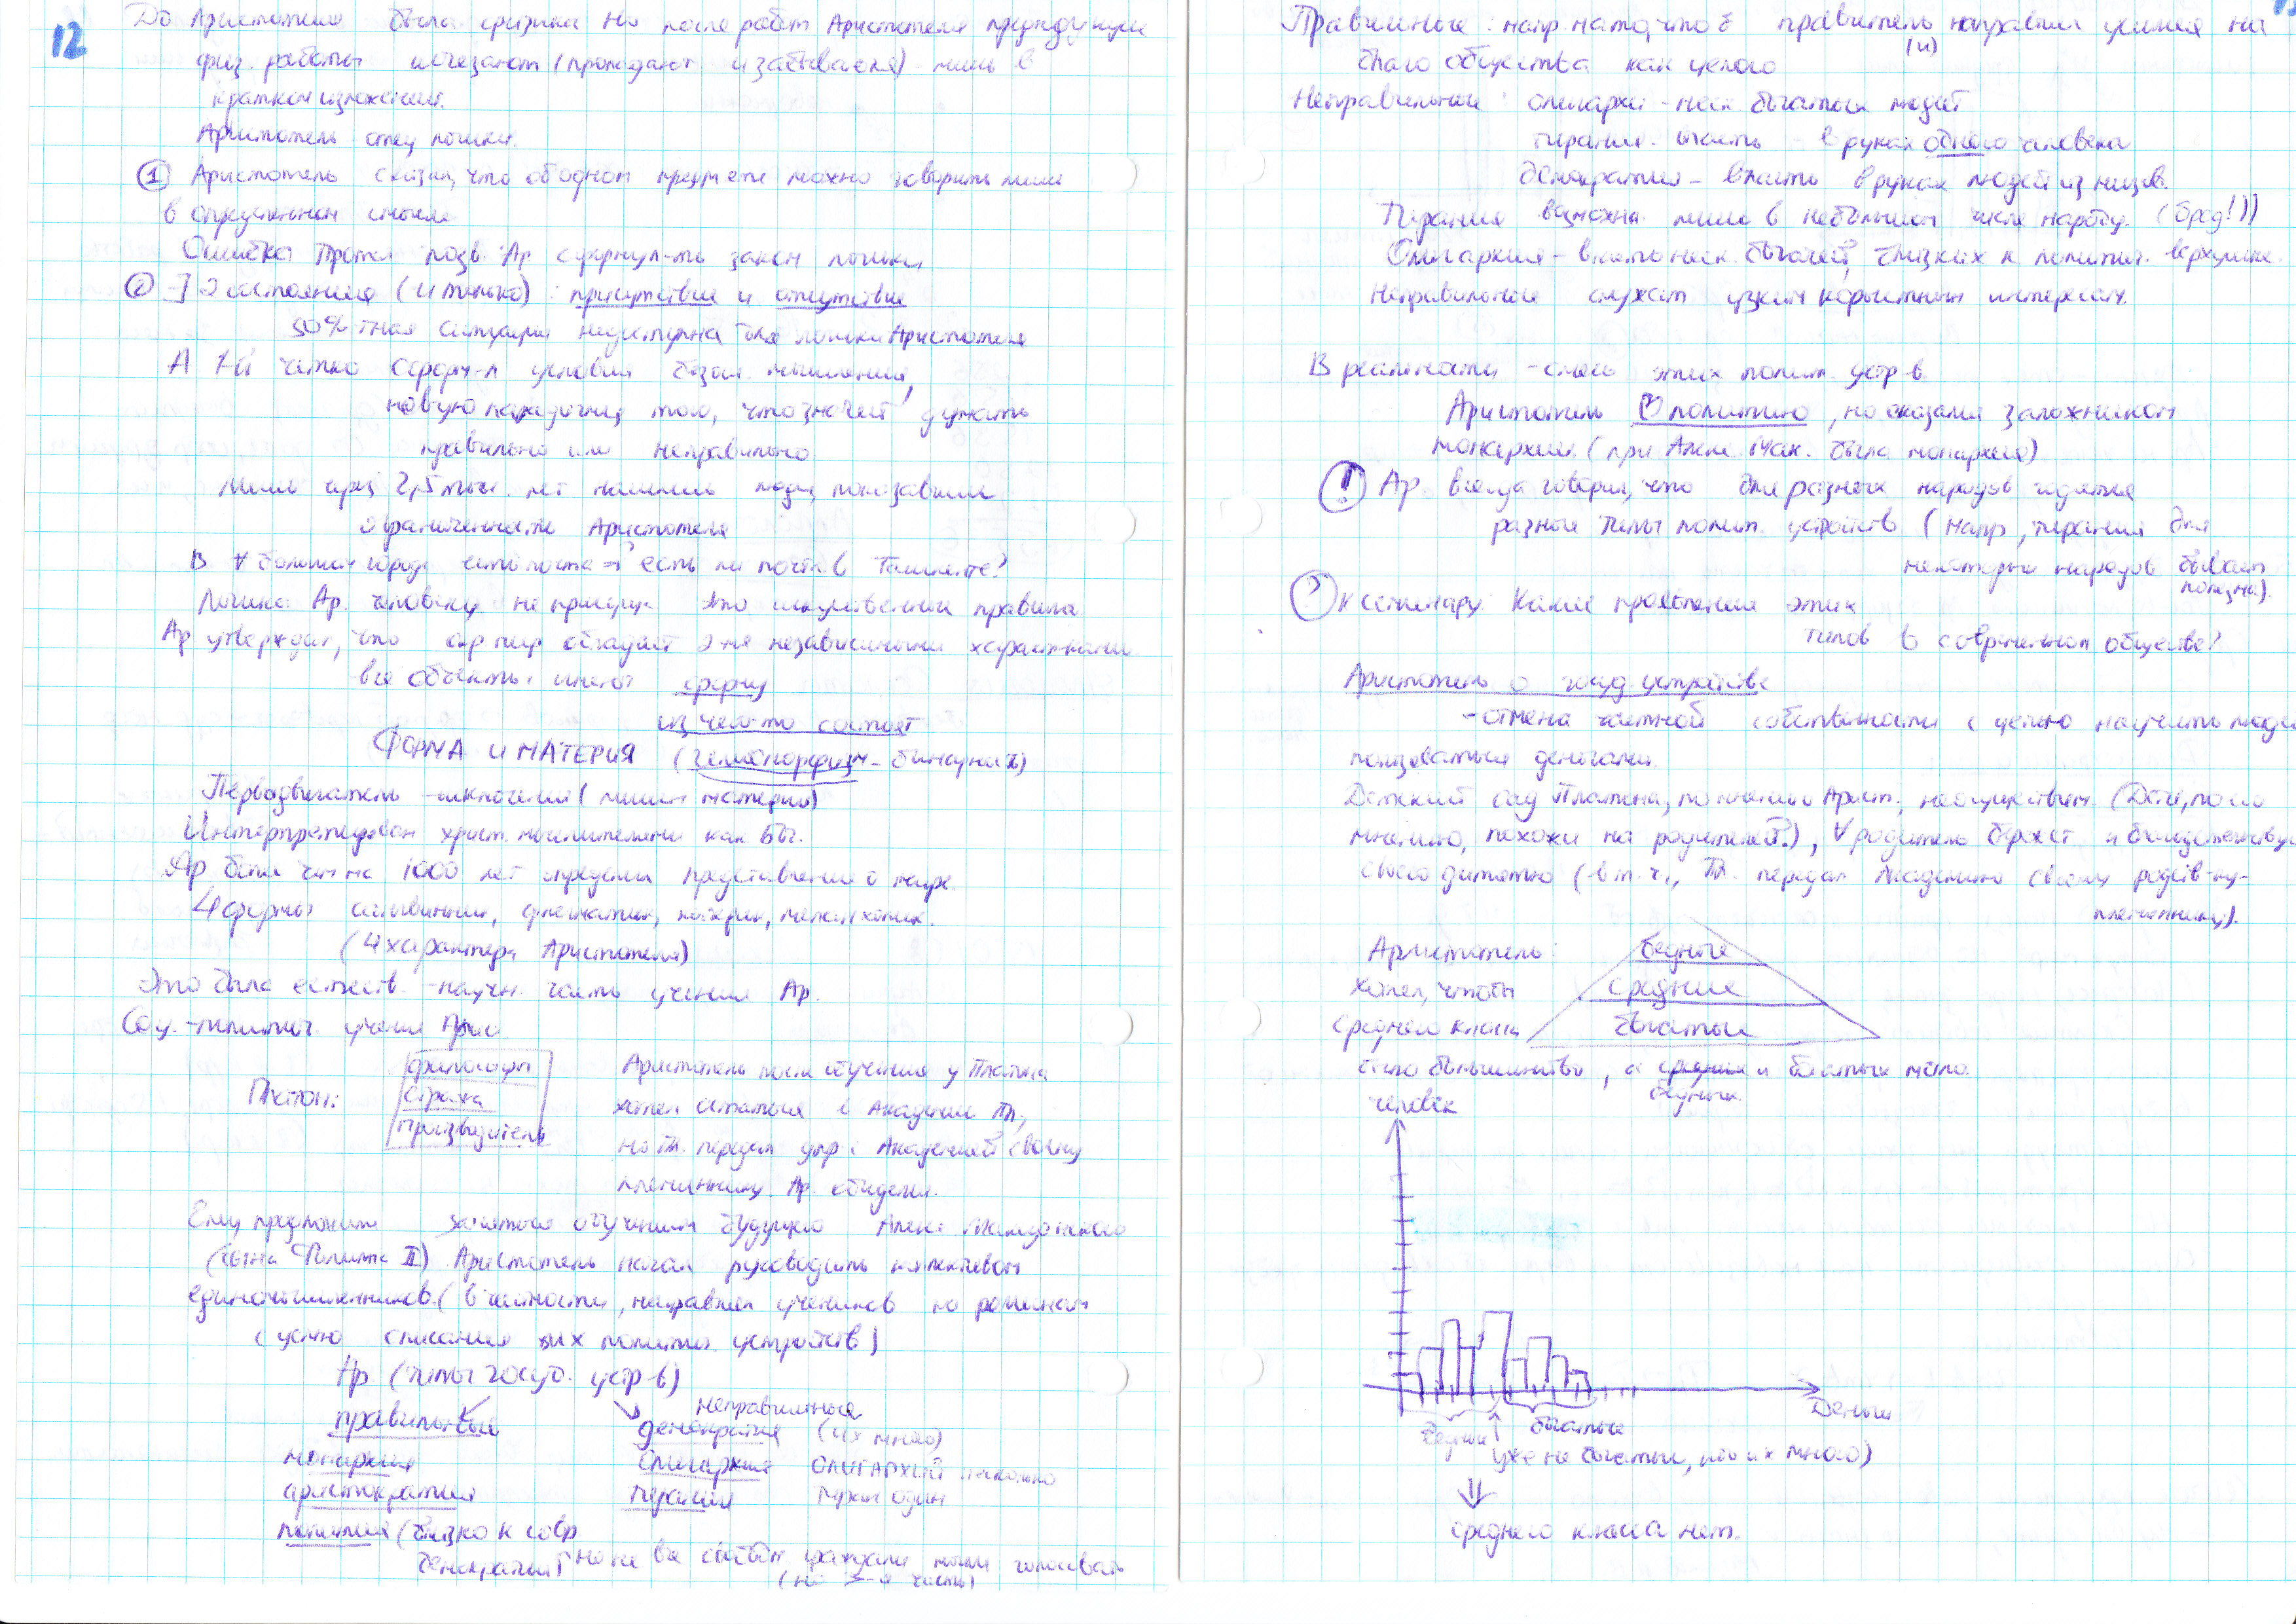 12
До Аристотеля была физика Но после работ Аристотеля предыдущие
физ. работы исчезают (пропадают и забываются) лишь в
кратком изложении.
Аристотель отец логики.
① Аристотель сказал, что об одном предмете можно говорить лишь
в определенном смысле
Ошибка позв. Ар сформул-ть закон логики
② ∃ 2 состояния (и только): присутствие и отсутствие
50%-тная ситуация недоступна для логики Аристотеля
А 1-й четко сформ-л условия мышления,
новую парадигму того, что значит думать
правильно или неправильно
Лишь через 2,5 тыс. лет нашлись люди, показавшие
ограниченность Аристотеля
В ∀ большом городе есть почта ⇒ есть ли почта в Ташкенте?
Логика Ар. человеку не присуща это искусственные правила
Ар утверждал, что мир обладает 2-мя независимыми характ-ками
все объекты имеют форму
из чего-то состоят
ФОРМА И МАТЕРИЯ (гилеморфизм - бинарность)
Перводвигатель - исключение (лишен материи)
Интерпретирован христ. мыслителями как Бог.
Ар более чем на 1000 лет определил представление о мире
4 формы сангвиник, флегматик, холерик, меланхолик.
(4 характера Аристотеля)
Это была естеств.-научн. часть учения Ар.
Соц.-политич. учения Арис
Платон: философы
стража
производители
Аристотель после обучения у Платона
хотел остаться в Академии Пл,
но Пл. передал упр-е Академией своему
племяннику. Ар. обиделся.
Ему предложили заняться обучением будущего Алекс Македонского
(сына Филиппа II) Аристотель начал руководить коллективом
единомышленников. (в частности, направил учеников по
с целью описания их политич. устройств)
Ар (типы госуд. устр-в)
правильные
неправильные
монархия
аристократия
полития (близко к совр
демократии) но не все свободн граждане могли голосовать
(но часть)
демократия (их много)
Олигархия ОЛИГАРХИЙ несколько
тирания тиран один
Правильные: напр на то, чтоб правитель (и) направил усилия на
благо общества как целого
Неправильные: олигархи - неск богатых людей
тирания. власть - в руках одного человека
Демократия - власть в руках людей из низов.
Тирания возможна лишь в небольшом числе народу. (бред!))
Олигархия - власть неск. богачей, близких к политич. верхушке.
Неправильные служат узким корыстным интересам.
В реальности - смесь этих полит. устр-в
Аристотель ♡ политию, но оказался заложником
монархии (при Алекс Мак. была монархия)
! Ар. всегда говорил, что для разных народов годятся
разные типы полит. устройств (напр, тирания для
некоторых народов бывает
полезна).
? К семинару: Какие проявления этих
типов в современном обществе?
Аристотель о госуд. устройстве
- отмена частной собственности с целью научить людей
пользоваться деньгами.
Детский сад Платона, по мнению Арист., неосуществим (Дети, по его
мнению, похожи на родителей?), ∀ родитель бережет и
своего дитятю (в т.ч., Пл. передал Академию своему родств-ку-
племяннику).
Аристотель:
хотел, чтобы
среднего класса
бедные
средние
богатые
было большинство, а бедных и богатых мало.
человек
Деньги
бедные
богатые
уже не богатые, но их много)
⇓
среднего класса нет.